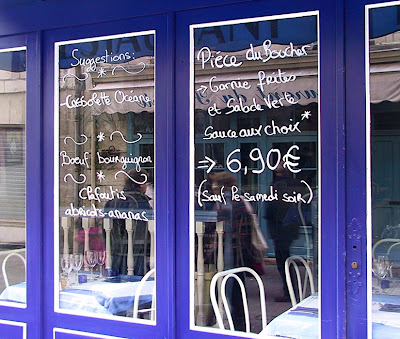 Suggestions:
-Cassolette Océane
Bœuf bourguignon
Clafoutis
abricots-ananas
Pièce du Boucher
→ Garnie frites
et Salade verte
Sauce aux choix*
⇒ 6,90€
(sauf le samedi soir)